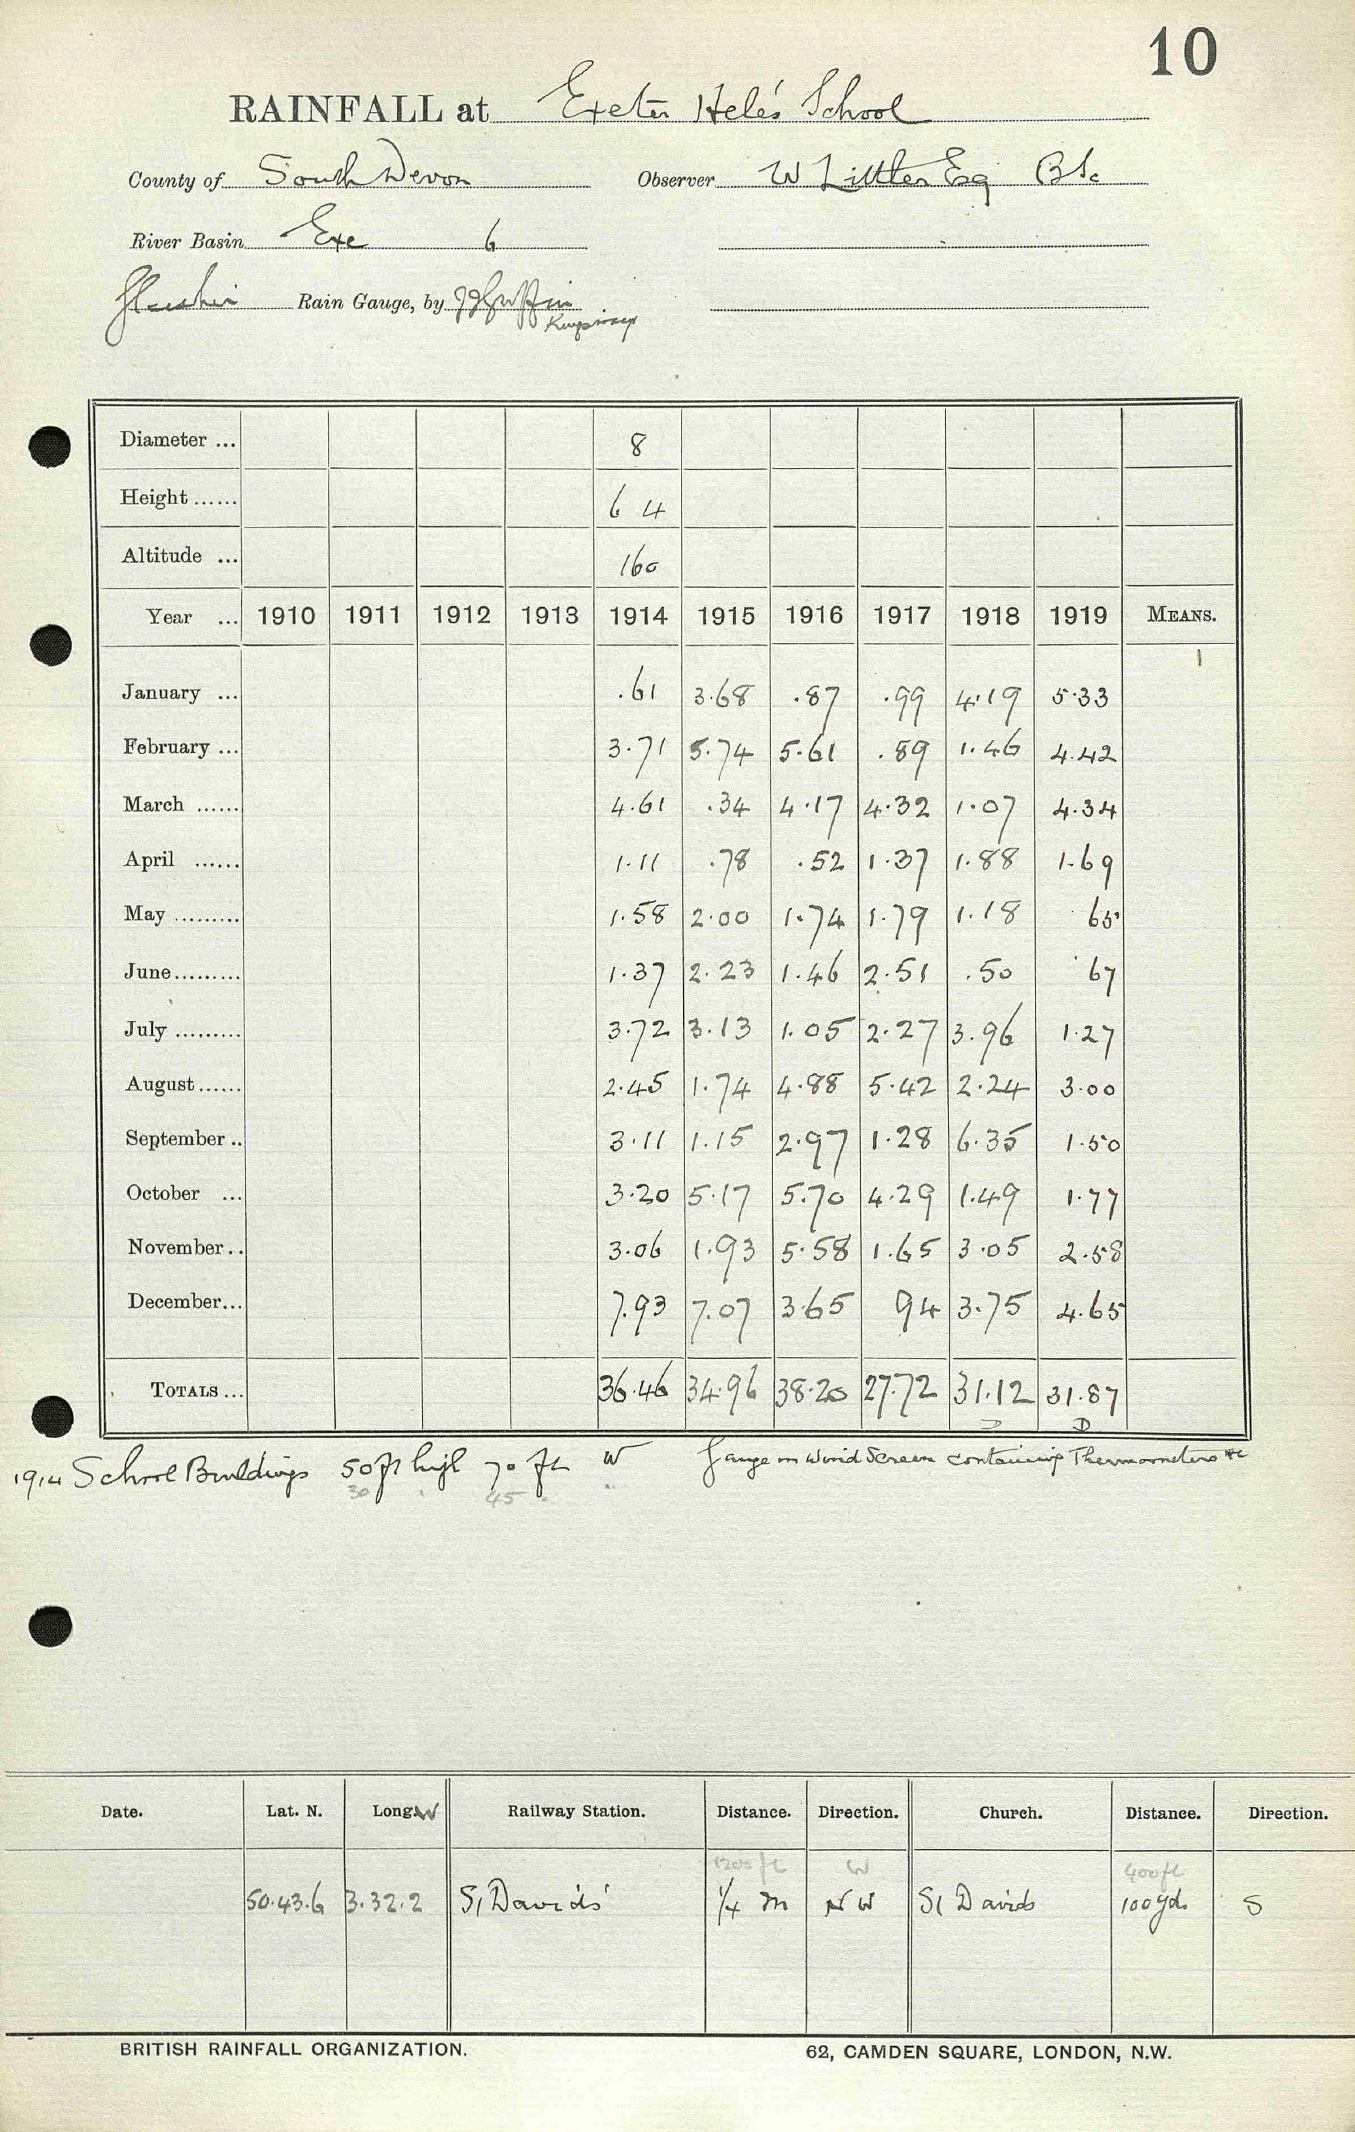 10
RAINFALL at Exeter Hele's School
County of South Devon Observer W Littler Esq BSc
River Basin Exe 6
Rain Gauge, by J J Griffin
Kingsway
Diameter ... 8
Height ...... 6 4
Altitude ... 160
Year ... 1910 1911 1912 1913 1914 1915 1916 1917 1918 1919 MEANS.
January ... .61 3.68 .87 .99 4.19 5.33
February ... 3.71 5.74 5.61 .89 1.46 4.42
March ...... 4.61 .34 4.17 4.32 1.07 4.34
April ...... 1.11 .78 .52 1.37 1.88 1.69
May ......... 1.58 2.00 1.74 1.79 1.18 65
June......... 1.37 2.23 1.46 2.51 .50 67
July ......... 3.72 3.13 1.05 2.27 3.96 1.27
August...... 2.45 1.74 4.88 5.42 2.24 3.00
September .. 3.11 1.15 2.97 1.28 6.35 1.50
October ... 3.20 5.17 5.70 4.29 1.49 1.77
November.. 3.06 1.93 5.58 1.65 3.05 2.58
December... 7.93 7.07 3.65 94 3.75 4.65
TOTALS ... 36.46 34.96 38.20 27.72 31.12 31.87
D
1914 School Buildings 50 ft high 70 ft W Gauge in Wind Screen containing Thermometers &c
30 45
Date. Lat. N. Long. W Railway Station. Distance. Direction. Church. Distance. Direction.
1200 ft W 400 ft
50.43.6 3.32.2 St Davids' 1/4 m NW St Davids 100 yds S
BRITISH RAINFALL ORGANIZATION. 62, CAMDEN SQUARE, LONDON, N.W.